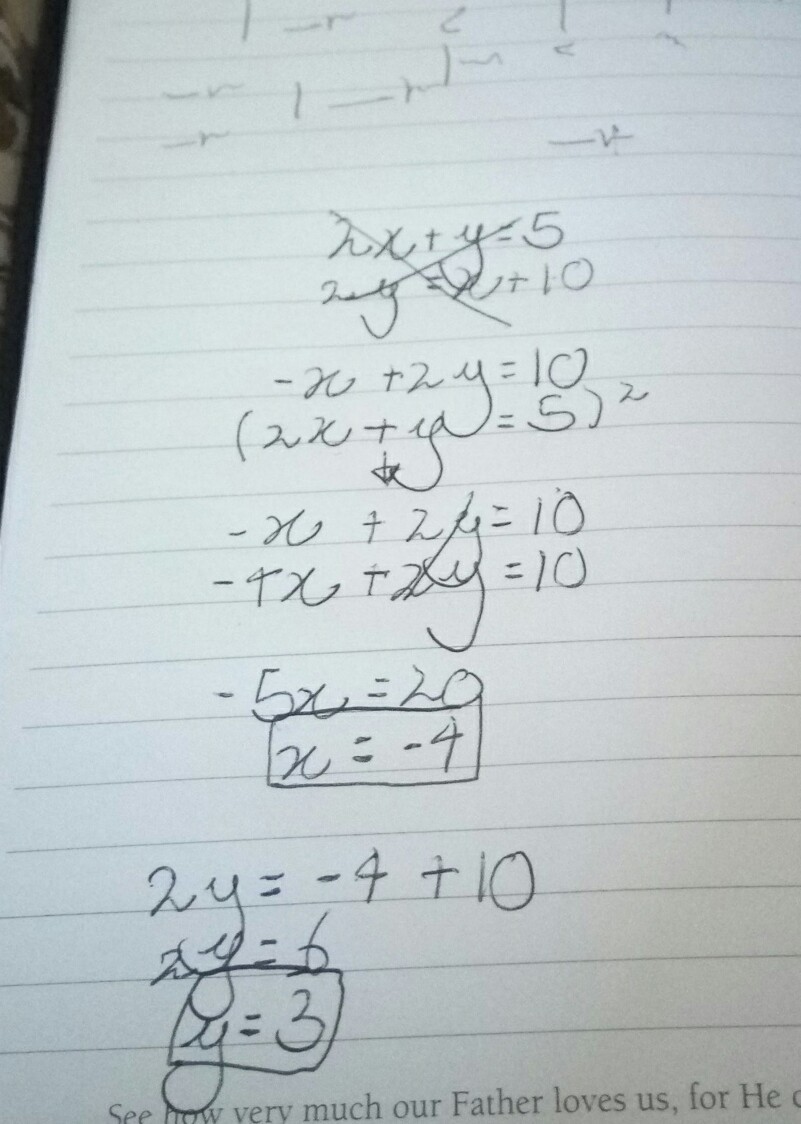 2x + y = 5
2y = x + 10
-x + 2y = 10
(2x + y = 5)2
-x + 2y = 10
-4x + 2y = 10
-5x = 20
x = -4
2y = -4 + 10
2y = 6
y = 3
See how very much our Father loves us, for He